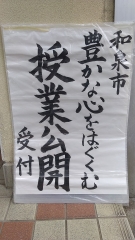 和泉市
豊かな心をはぐくむ
授業公開
受付